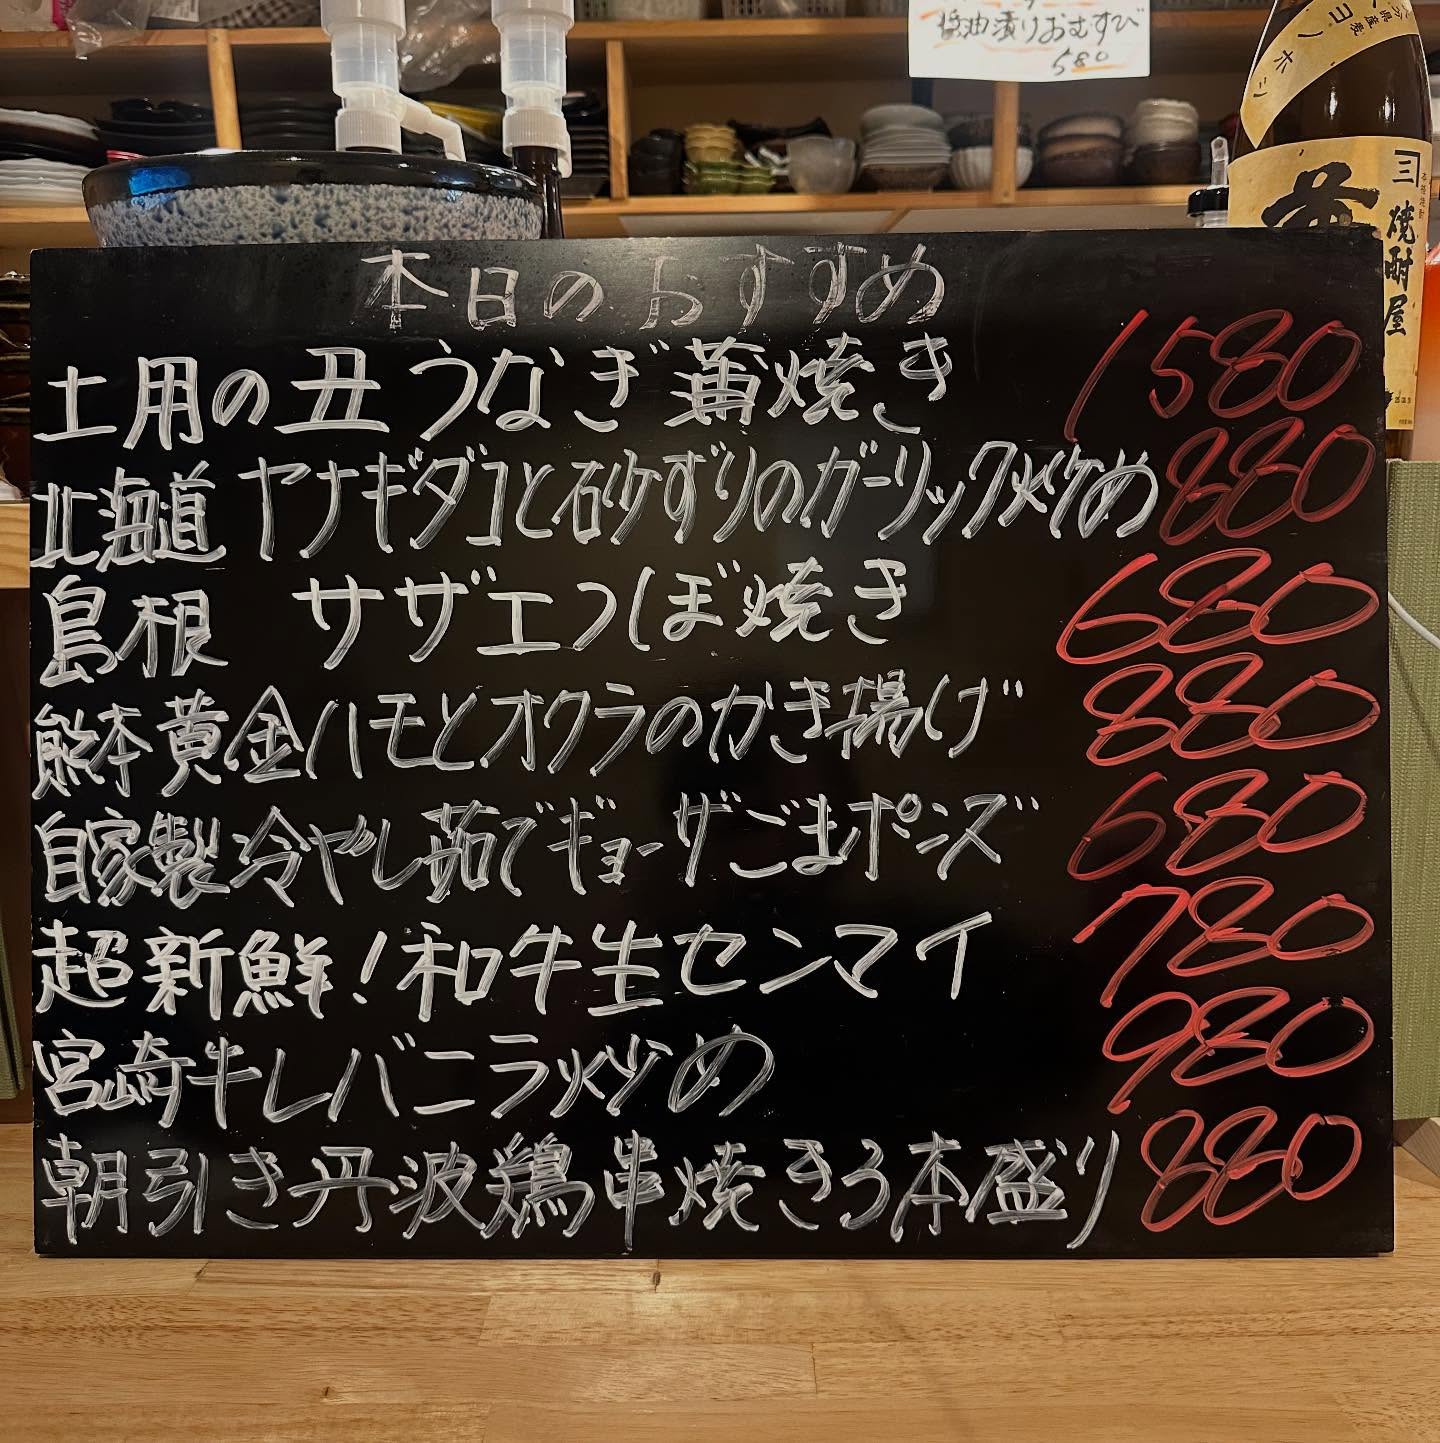 醤油漬りおむすび
580
本日のおすすめ
土用の丑うなぎ蒲焼き 1580
北海道 ヤナギダコと砂ずりのガーリック炒め 880
島根 サザエつぼ焼き 680
熊本黄金ハモとオクラのかき揚げ 880
自家製冷やし茹でギョーザごまポンズ 680
超新鮮!和牛生センマイ 780
宮崎牛レバニラ炒め 980
朝引き丹波鶏串焼き3本盛り 880
三
焼酎屋
本格焼酎